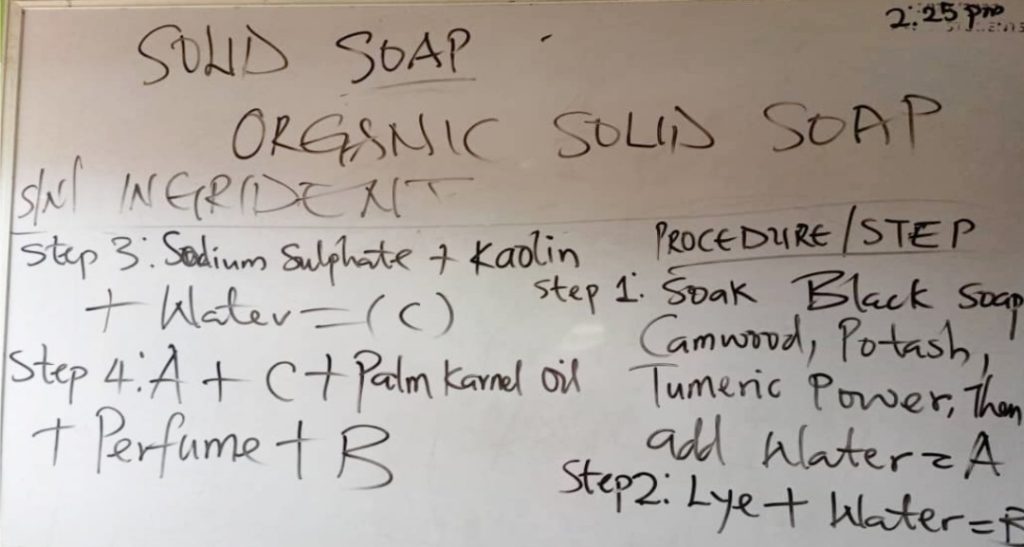 2:25 pm
SOLID SOAP
ORGANIC SOLID SOAP
S/N INGRIDENT
Step 3: Sodium Sulphate + Kaolin
+ Water = (C)
Step 4: A + C + Palm Karnel oil
+ Perfume + B
PROCEDURE/STEP
Step 1: Soak Black Soap
Camwood, Potash,
Tumeric Power, Then
add Water = A
Step2: Lye + Water = B